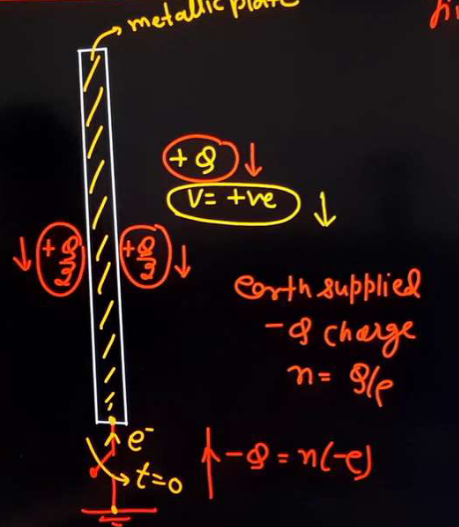 metallic plate
+Q ↓
V= +ve ↓
↓ +Q/2 +Q/2 ↓
earth supplied
-Q charge
n= Q/e
e⁻
t=0
-Q = n(-e)